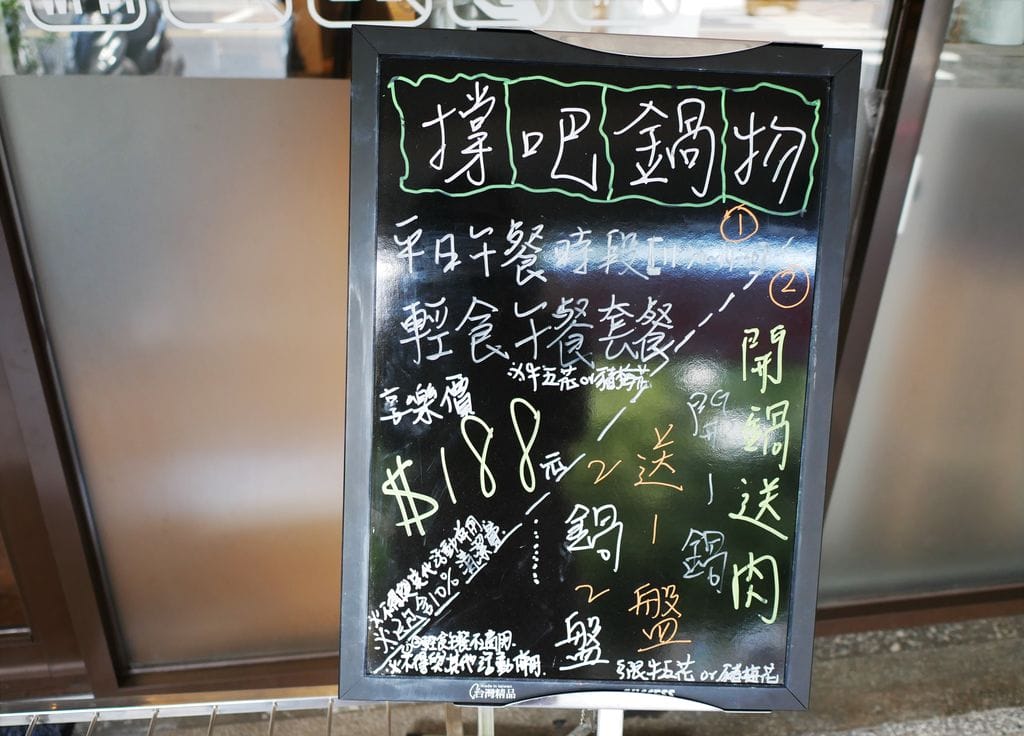 撐吧鍋物
①
平日午餐時段
輕食午餐套餐
※牛五花or豬梅花
享樂價
$188元
※不得與其他活動併用
※已內含10%清潔費
②
開鍋送肉
開1鍋
送1盤
2鍋2盤
限牛五花or豬梅花
輕食午餐不適用
※不得與其他活動併用
台灣精品
SUCCESS